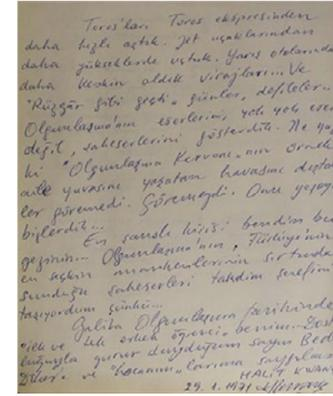 Toros'ları Toros ekspresinden
daha hızlı aştık. Jet uçaklarından
daha yükseklerde uçtuk. Yarış otolarından
daha keskin aldık virajları... Ve
"Rüzgâr gibi geçti" günler, defileler...
Olgunlaşma'nın eserlerini, yok yok eser
değil, şaheserlerini gösterdik. Ne yazık
ki "Olgunlaşma Kervanı"nın örnek
aile yuvasını yaşatan havasını dıştaki-
ler göremedi. Göremezdi. Onu yaşayan
bizlerdik...
En şanslı kişisi bendim bu
gezinin... Olgunlaşma'nın, Türkiye'nin
en seçkin mankenlerinin sırtında
sunduğu şaheserleri takdim şerefini
taşıyordum çünkü...
Galiba Olgunlaşma tarihinde
"ilk ve tek erkek öğrenci" benim...
luğuyla gurur duyduğum sayın
ve "hocanım"larıma saygılar
HALİT KIVANÇ
29.1.1971